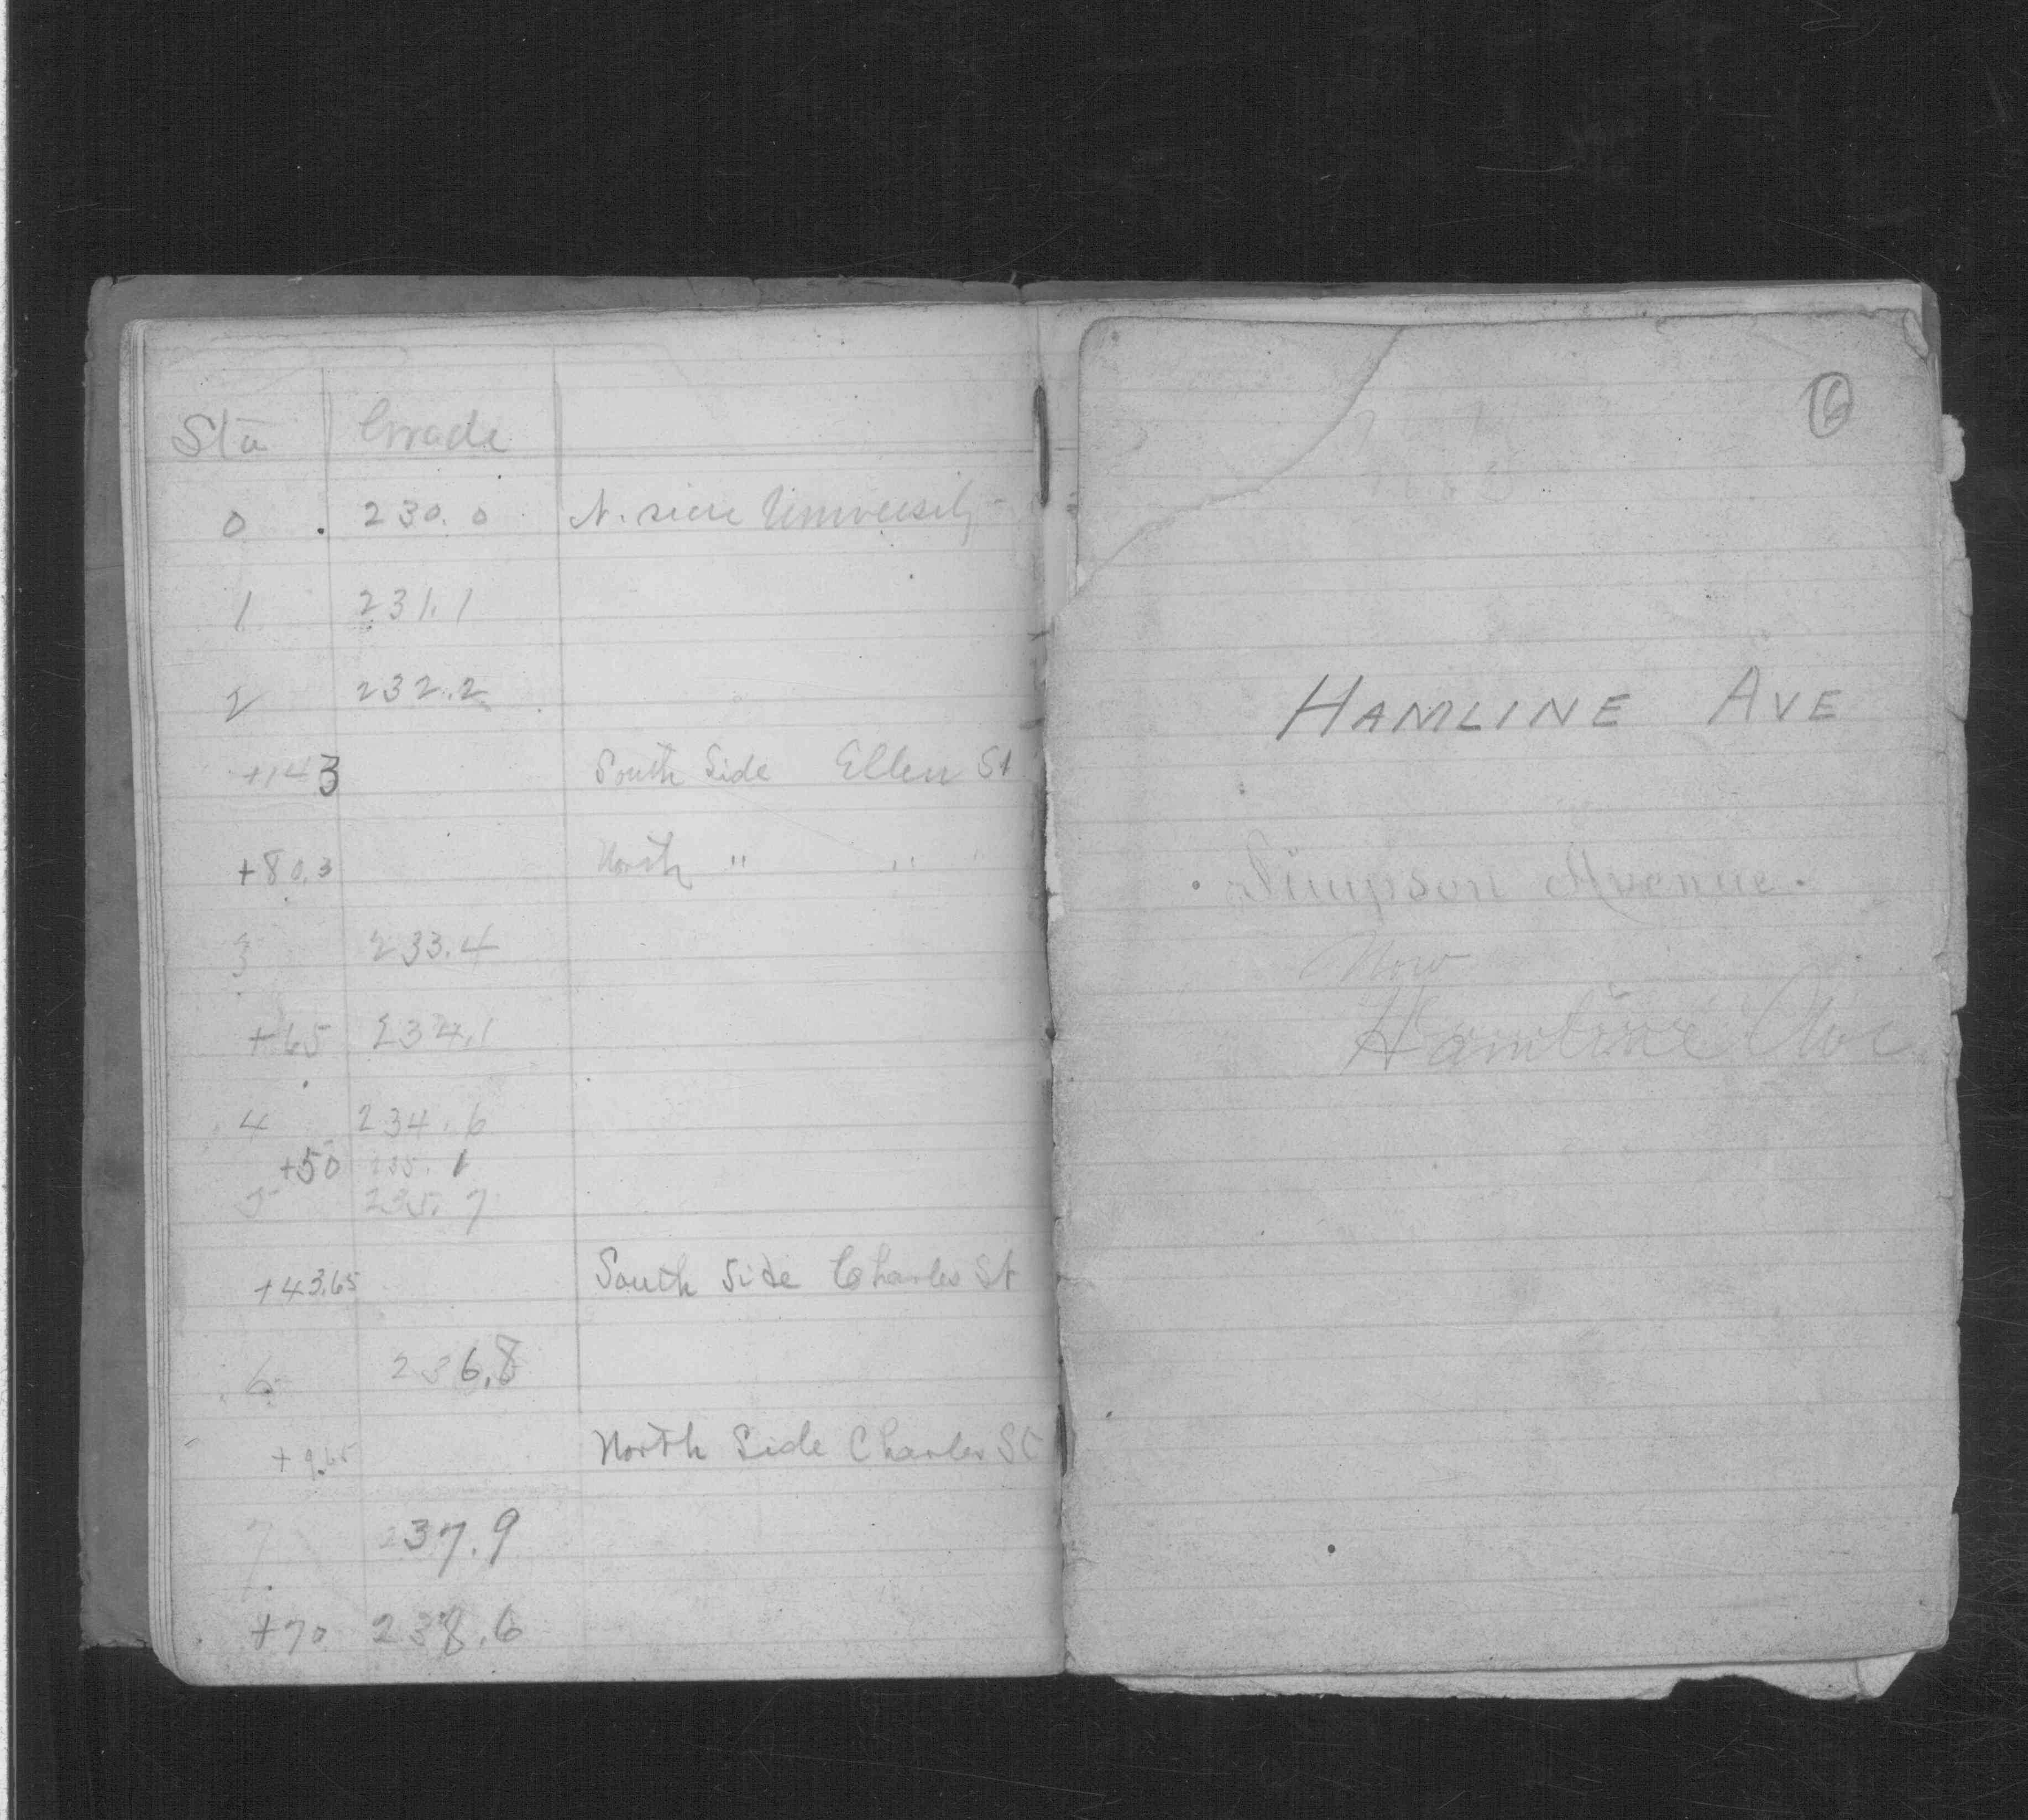 Sta Grade
0 230.0 N. side University
1 231.1
2 232.2
+14.3 South Side Ellen St
+80.3 North " "
3 233.4
+65 234.1
4 234.6
+50 235.1
5 235.7
+43.65 South Side Charles St
6 236.8
+9.65 North Side Charles St
7 237.9
+70 238.6
6
HAMLINE AVE
Simpson Avenue.
Now
Hamline Ave